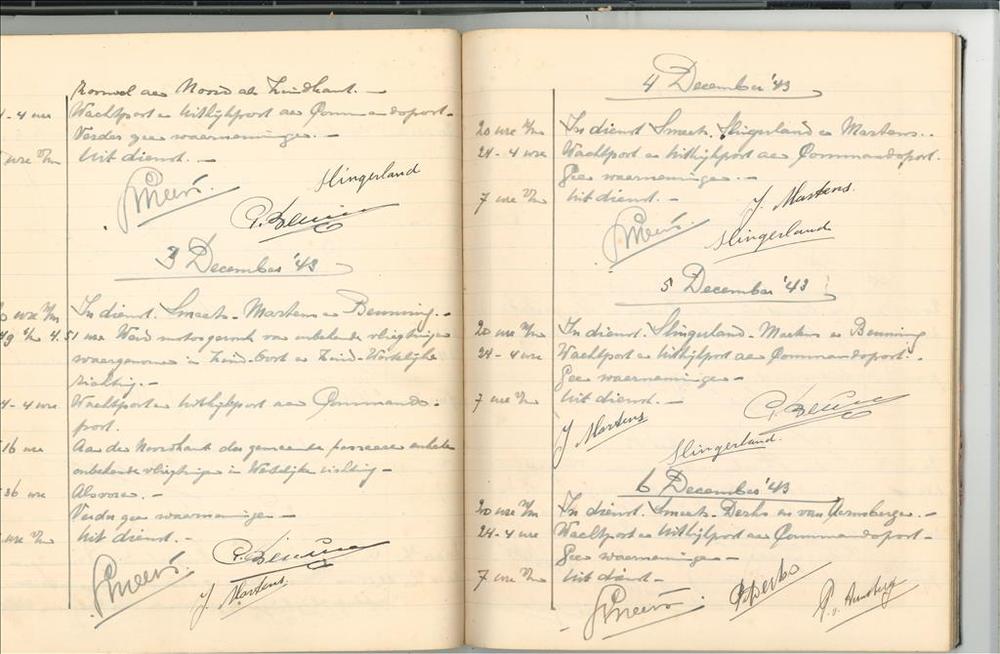 Korovel aan Noord als Zuidkant. —
- 4 ure Wachtpost en Uitkijkpost aan Commandopost.
Verder geen waarnemingen. —
ure v/m Uit dienst. —
Smeets.
Slingerland
C. Benning
3 December '43
ure n/m In dienst. Smeets. Martens en Benning. —
v/m 4.51 ure Werd motorgeronk van onbekende vliegtuigen
waargenomen in Zuid-Oost en Zuid-Westelijke
richting. —
4 - 4 ure Wachtpost en Uitkijkpost aan Commando-
post.
16 ure Aan de Noordkant der gemeente passeeren enkele
onbekende vliegtuigen in Westelijke richting —
36 ure Als voren. —
Verder geen waarnemingen —
ure v/m Uit dienst. —
Smeets
C. Benning
J. Martens.
4 December '43
20 ure n/m In dienst Smeets. Slingerland en Martens..
24 - 4 ure Wachtpost en Uitkijkpost aan Commandopost.
Geen waarnemingen. —
7 ure v/m Uit dienst. —
J. Martens.
Smeets.
Slingerland
5 December '43
20 ure n/m In dienst. Slingerland. Martens en Benning
24 - 4 ure Wachtpost en Uitkijkpost aan Commandopost.
Geen waarnemingen —
7 ure v/m Uit dienst. —
C. Benning
J Martens
Slingerland.
6 December '43
20 ure n/m In dienst. Smeets. Derks en van —
24 - 4 ure Wachtpost en Uitkijkpost aan Commandopost —
Geen waarnemingen —
7 ure v/m Uit dienst —
Smeets